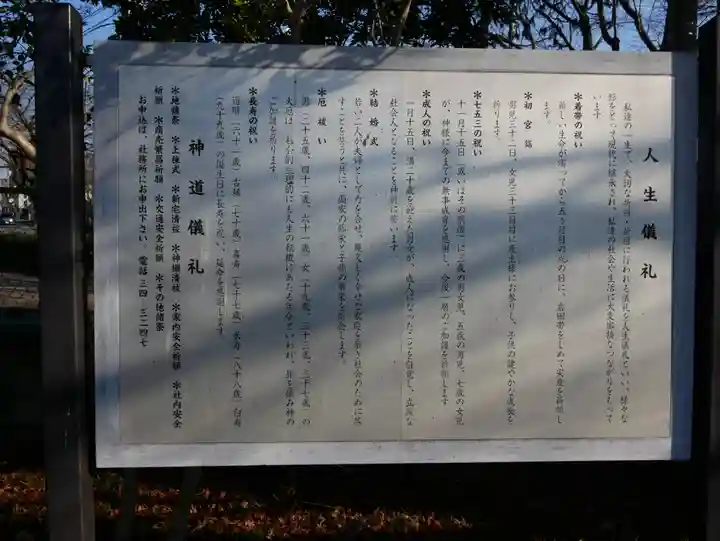 人生儀礼
私達の一生で、大切な時期・折節に行われる儀礼を人生儀礼といい、様々な
形をとって現代に継承され、私達の社会や生活に大変密接なつながりをもって
います
＊着帯の祝い
新しい生命が宿ってから五ヶ月目の戌の日に、岩田帯をしめて安産を祈願し
ます。
＊初宮詣
男児三十二日、女児三十三日目に産土様にお参りし、子供の健やかな成長を
祈ります。
＊七五三の祝い
十一月十五日（或いはその前後）に三歳の男女児、五歳の男児、七歳の女児
が、神様に今までの無事成長を感謝し、今後一層のご加護を祈願します
＊成人の祝い
一月十五日、満二十歳を迎えた男女が、成人になったことを自覚し、立派な
社会人となることを神前に誓います
＊結婚式
若い二人が夫婦として力を合せ、幾久しく幸せな家庭を築き社会のために尽
すことを誓うと共に、両家の弥栄と子孫の繁栄を祈念します。
＊厄祓い
男（二十五歳、四十二歳、六十一歳）女（十九歳、三十三歳、三十七歳）の
大厄は、社会的生理的にも人生の転機にあたる年令といわれ、身を慎み神の
ご加護を祈ります
＊長寿の祝い
還暦（六十一歳）古稀（七十歳）喜寿（七十七歳）米寿（八十八歳）白寿
（九十九歳）の誕生日に長寿を祝い、延命を感謝します
神道儀礼
＊地鎮祭　＊上棟式　＊新宅清祓　＊神棚清祓　＊家内安全祈願　＊社内安全
祈願　＊商売繁昌祈願　＊交通安全祈願　＊その他諸祭
お申込は、社務所にお申出下さい　電話三四-三二四七